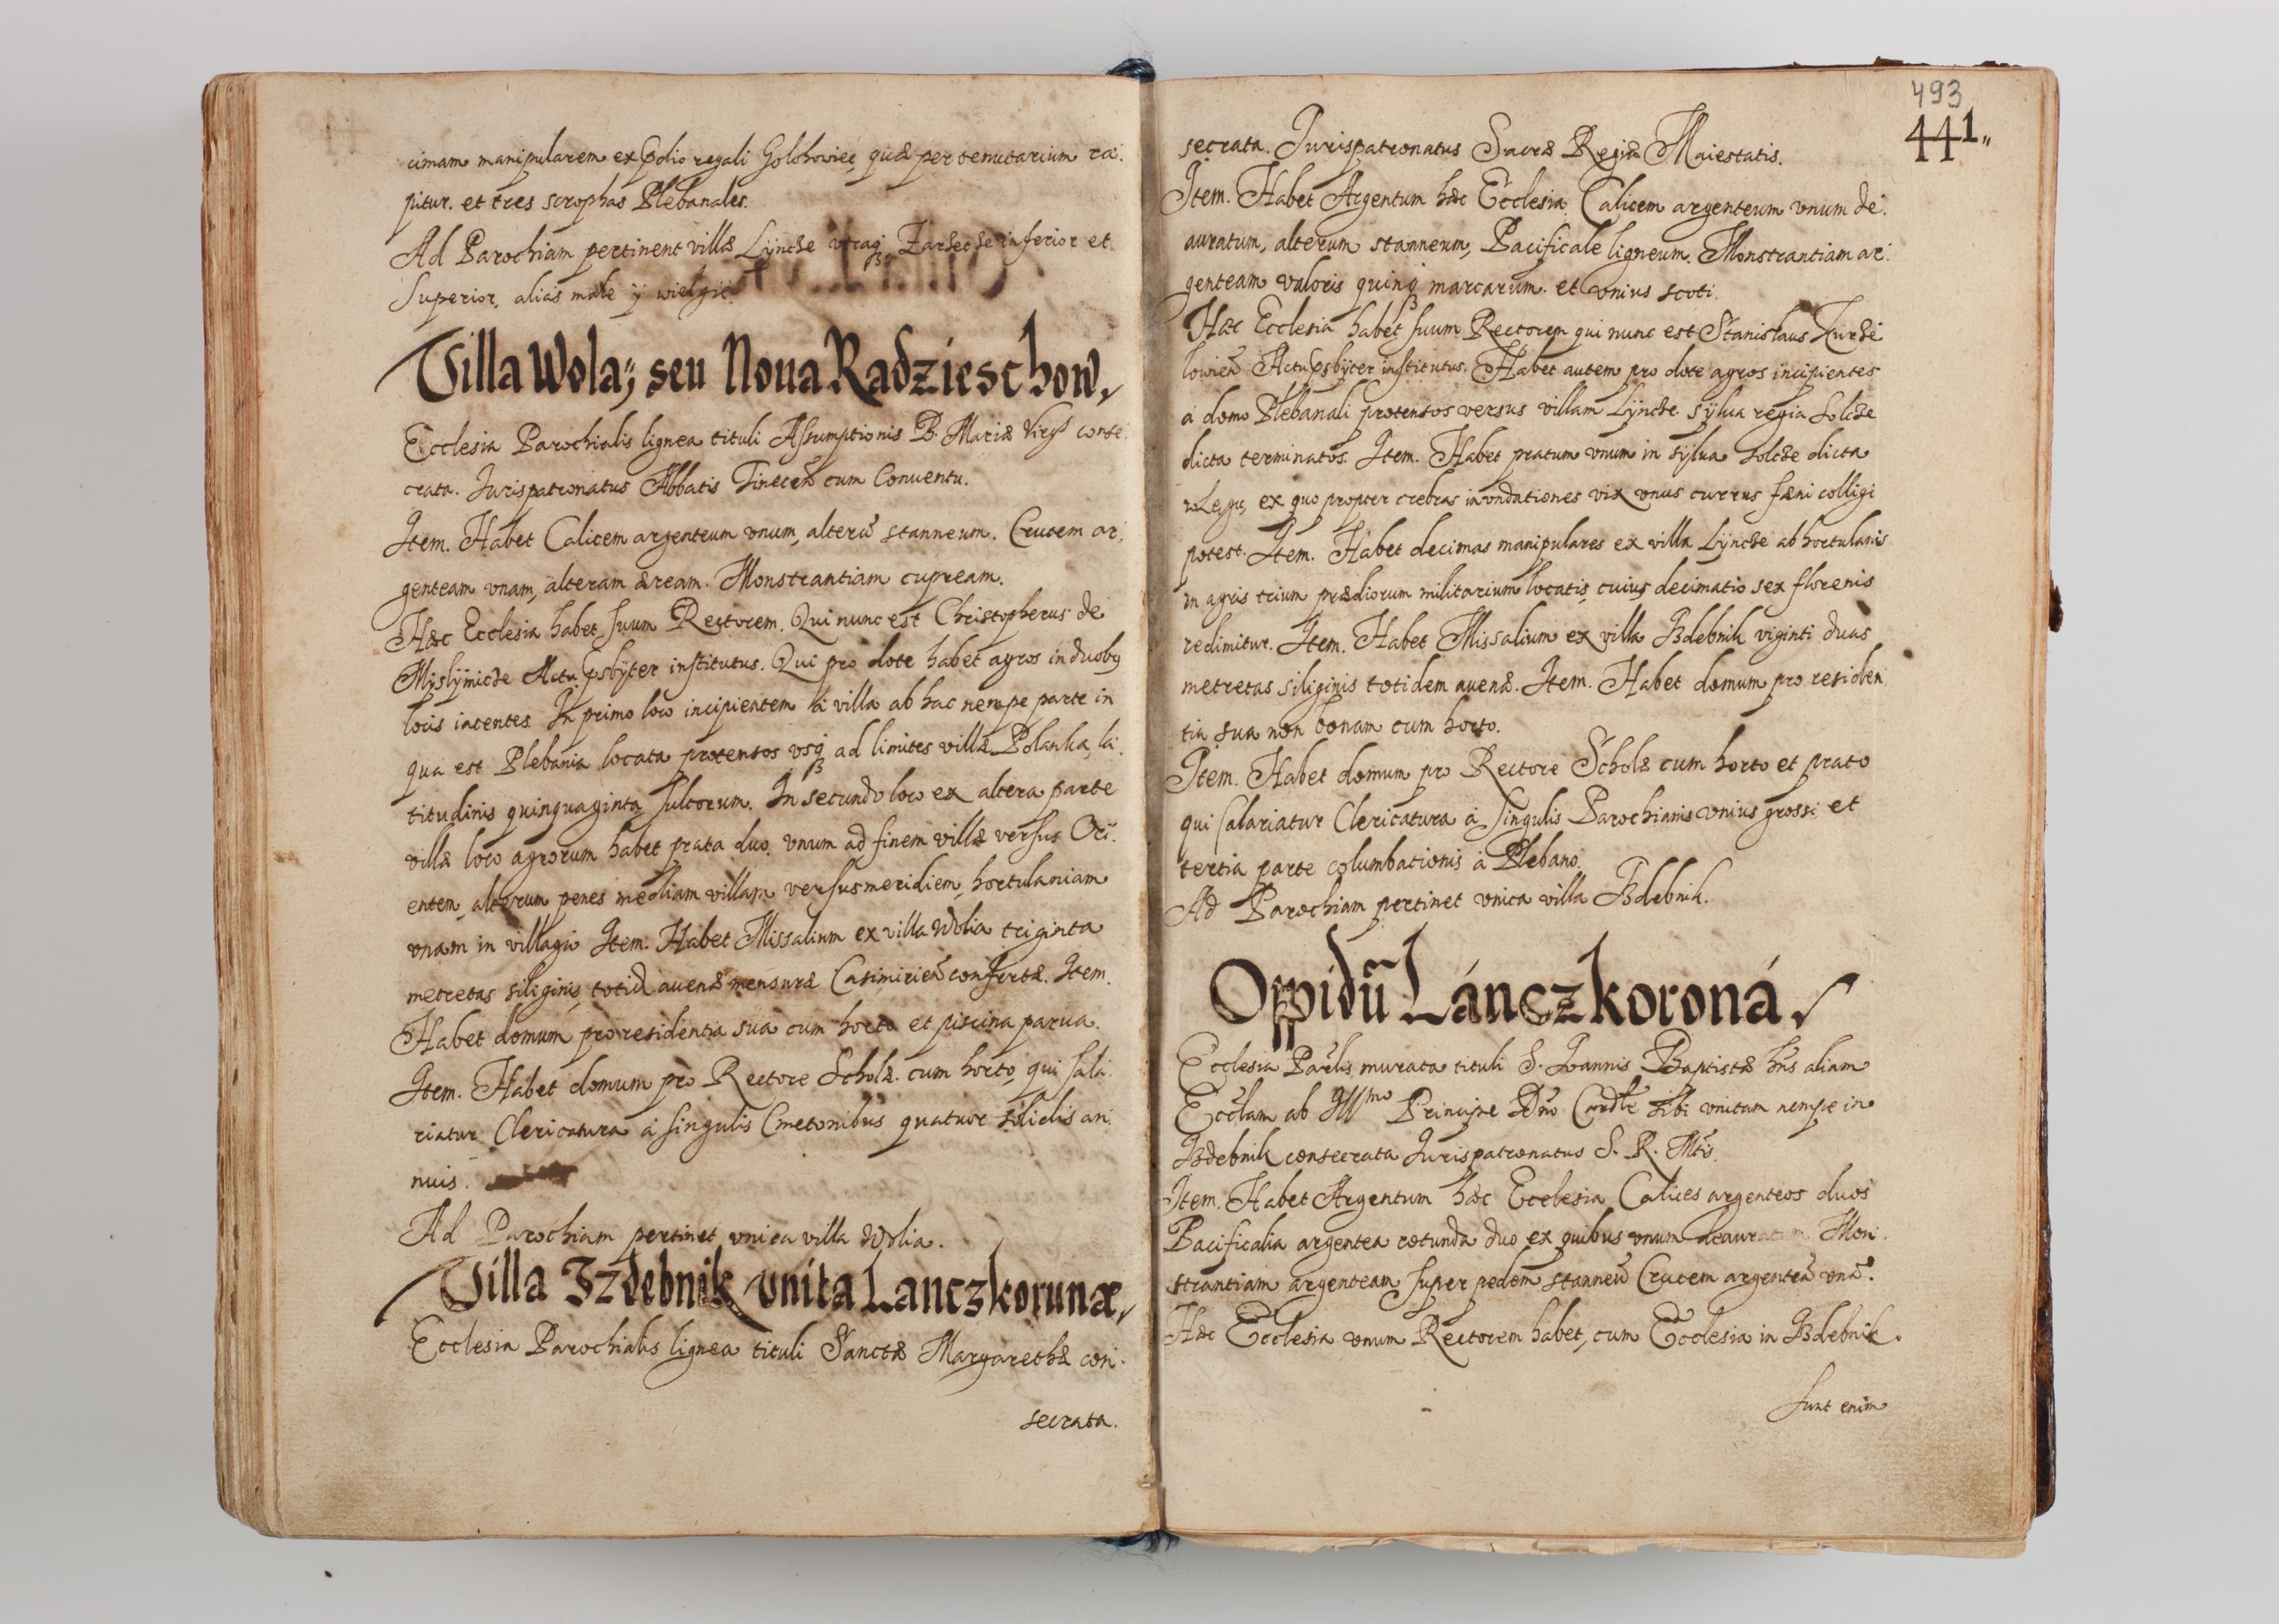 cimam manipularem ex pdio regali Golchowiec, quæ per tenutarium ra.
pitur. et tres scrophas Plebanales.
Ad Parochiam pertinent villæ Lÿncze utraq3, Zarzecze inferior et
Superior, alias małe ÿ wielgie.
Villa Wola, seu Noua Radzieschow.
Ecclesia Parochialis lignea tituli Assumptionis B. Mariæ Virgs conse.
crata. Jurispatronatus Abbatis Tinecen̄ cum Conuentu.
Item. Habet Calicem argenteum vnum, alterū stanneum. Crucem ar.
genteam vnam, alteram æream. Monstrantiam cupream.
Hæc Ecclesia habet suum Rectorem. Qui nunc est Christopherus de
Myslÿmicze Actu psbÿter institutus. Qui pro dote habet agros in duobꝫ
locis iacentes. In primo loco incipientem á villa ab hac nempe parte in
qua est Plebania locata protensos vsq3 ad limites villæ Polanka, la.
titudinis quinquaginta sulcorum. In secundo loco ex altera parte
villæ loco agrorum habet prata duo. vnum ad finem villæ versus Ori.
entem, alterum penes mediam villam versus meridiem, hortulaniam
vnam in villagio Item. Habet Missalium ex villa Wolia triginta
metretas siliginis, totid auenæ mensuræ Casimirien̄ confertæ. Item.
Habet domum pro residentia sua cum horto et piscina parua.
Item. Habet domum pro Rectore Scholæ. cum horto, qui sala.
riatur Clericatura á singulis Cmetonibus quatuor solidis an.
nuis.
Ad Parochiam pertinet vnica villa Wolia.
Villa Izdebnik vnita Lanczkorunæ,
Ecclesia Parochialis lignea tituli Sanctæ Margarethæ con.
secrata.
493
441
secrata. Jurispatronatus Sacræ Regiæ Maiestatis.
Item. Habet Argentum hæc Ecclesia. Calicem argenteum vnum de.
auratum, alterum stanneum, Pacificale ligneum. Monstrantiam ar.
genteam valoris quinq3 marcarum. et vnius scoti.
Hæc Ecclesia habet suum Rectorem qui nunc est Stanislaus
Actu psbÿter institutus. Habet autem pro dote agros incipientes
á domo Plebanali protensos versus villam Lÿncze sÿlua regia Solcze
dicta terminatos. Item. Habet pratum vnum in sÿlua Solcze dicta
ex quo propter crebras inondationes vix vnus currus fæni colligi
potest. Item. Habet decimas manipulares ex villa Lÿncze ab hortulanis
in agris trium prædiorum militarium locatis, cuius decimatio sex florenis
redimitur. Item. Habet Missalium ex villa Izdebnik viginti duas
metretas siliginis totidem auenæ. Item. Habet domum pro residen.
tia sua non bonam cum horto.
Item. Habet domum pro Rectore Scholæ cum horto et prato
qui salariatur Clericatura á singulis Parochianis vnius grossi et
tertia parte columbationis á Plebano.
Ad Parochiam pertinet vnica villa Izdebnik.
Oppidū Lánczkoroná.
Ecclesia Parlis murata tituli S. Joannis Baptistæ hñs aliam
Ecclam ab Illmo Principe Dno Cardle sibi vnitam nempe in
Izdebnik consecrata Jurispatronatus S. R. Mtis.
Item. Habet Argentum hæc Ecclesia Calices argenteos duos
Pacificalia argentea rotunda duo ex quibus vnum deauratum Mon.
strantiam argenteam super pedem stanneū Crucem argenteā vnā.
Hæc Ecclesia vnum Rectorem habet, cum Ecclesia in Izdebnik.
sunt enim